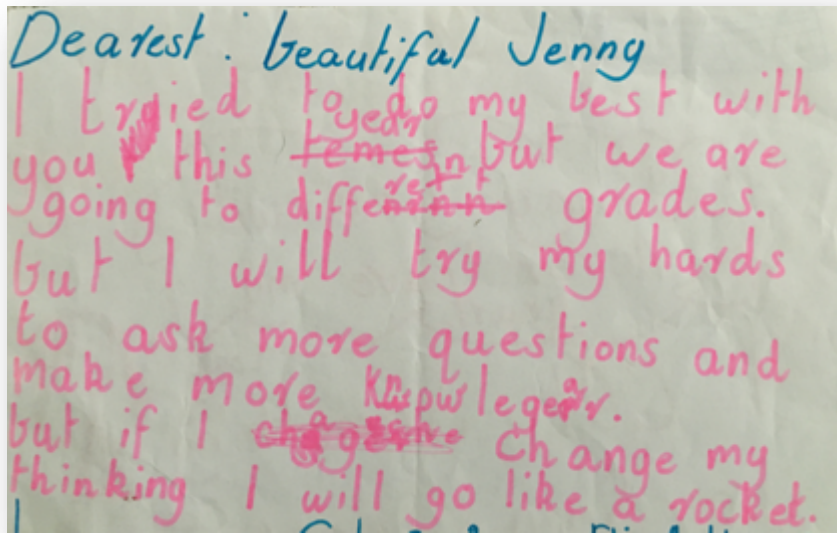 Dearest : beautiful Jenny
I tried to do my best with
you this year but we are
going to different grades.
but I will try my hards
to ask more questions and
make more
but if I change my
thinking I will go like a rocket.